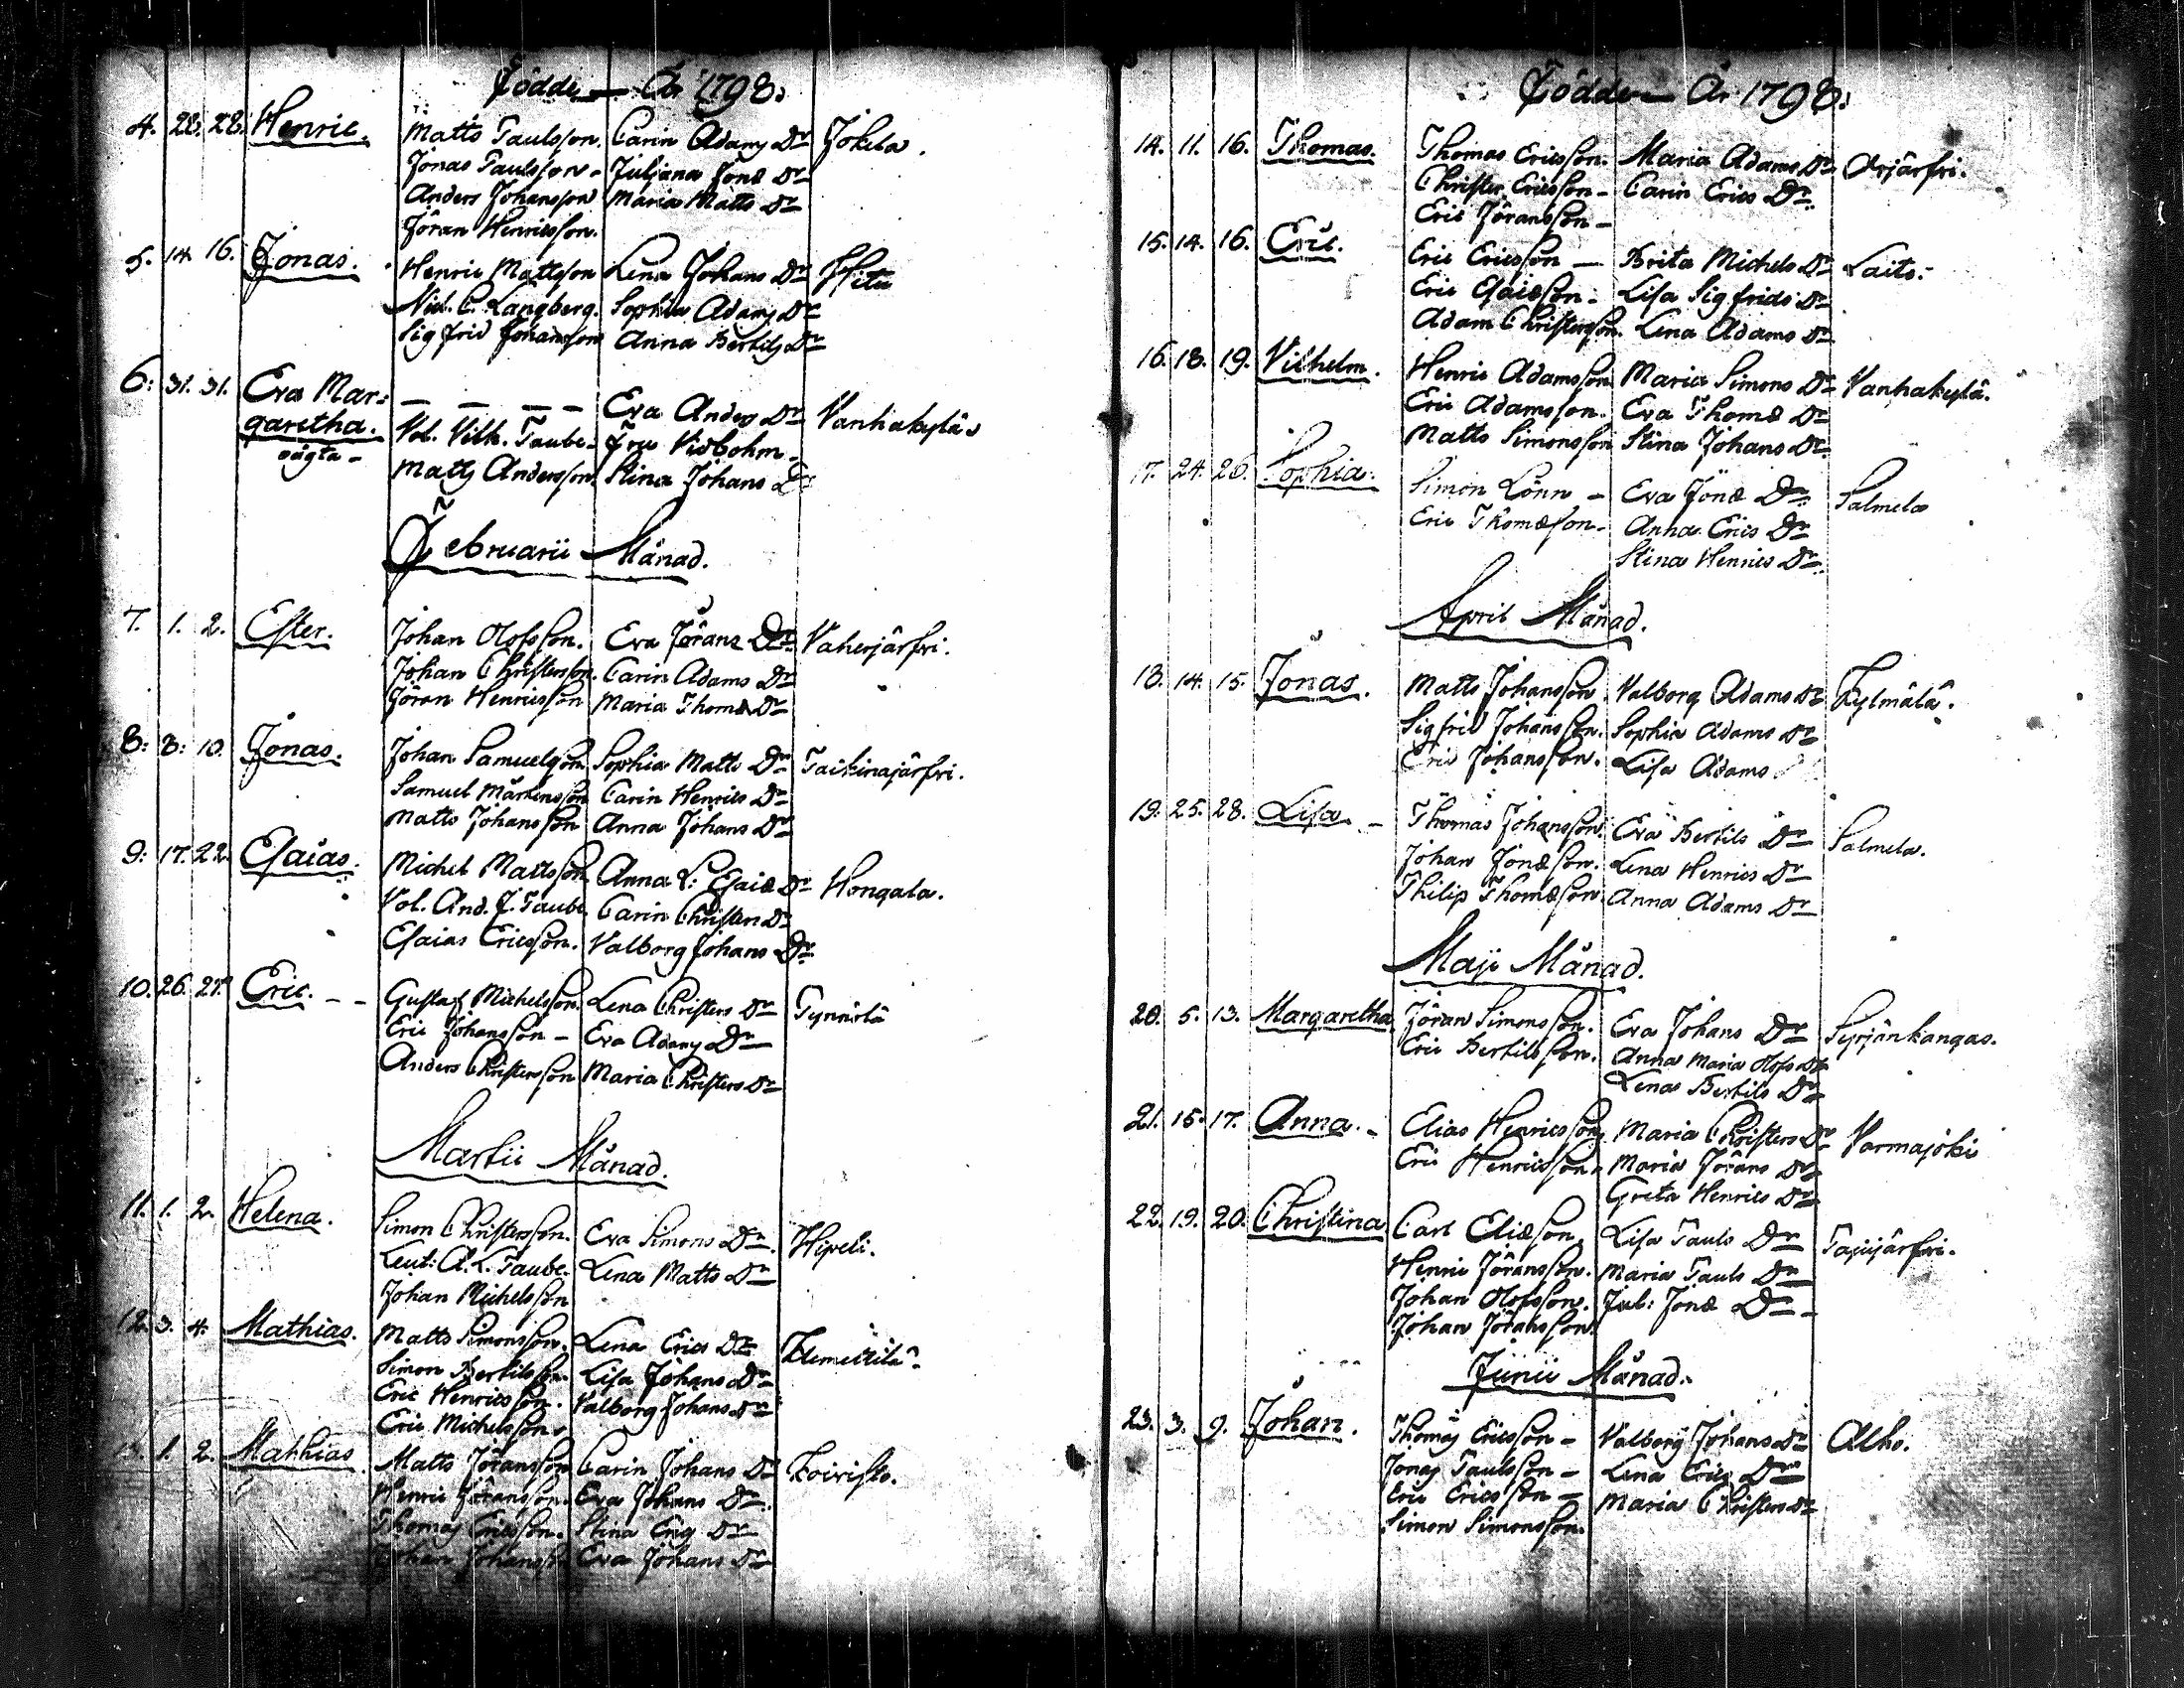 Födde År 1798.
4. 28. 28. Henric. Matts Paulsson. Carin Adams Dr Jokela.
Jonas Paulsson. Juliana Jonæ Dr
Anders Johansson Maria Matts Dr
Jöran Henricsson.
5. 14. 16. Jonas. Henric Mattsson Lena Johans Dr
Nid. C. Langberg. Sophia Adams Dr
Sigfrid Johansson Anna Bertils Dr
6. 31. 31. Eva Mar- — — — — Eva Anders Dr Vanhakylä
garetha. Vol. Vilh. Taube. Fru Vidbohm.
oägta Matts Andersson Stina Johans Dr
Februarii Månad.
7. 1. 2. Ester. Johan Olofsson. Eva Jörans Dr Vaherjärfvi.
Johan Christersson. Carin Adams Dr
Jöran Henricsson Maria Thomæ Dr
8. 8. 10. Jonas. Johan Samuelsson Sophia Matts Dr Paikinajärfvi.
Samuel Mårtensson Carin Henrics Dr
Matts Johansson Anna Johans Dr
9. 17. 22. Esaias. Michel Mattsson Anna L: Esaiæ Dr Hongala.
Vol. And. J. Taube. Carin Christers Dr
Esaias Ericsson. Valborg Johans Dr
10. 26. 27. Eric. Gustaf Michelsson. Lena Christers Dr Pynnölä
Eric Johansson Eva Adams Dr
Anders Christersson Maria Christers Dr
Martii Månad.
11. 1. 2. Helena. Simon Christersson. Eva Simons Dr
Leut: A. L. Taube. Lena Matts Dr
Johan Michelsson
12. 3. 4. Mathias. Matts Simonsson. Lena Erics Dr Klemettilä.
Simon Bertilsson. Lisa Johans Dr
Eric Henricsson. Valborg Johans Dr
Eric Michelsson.
13. 1. 2. Mathias Matts Jöransson Carin Johans Dr Koivisto.
Henric Jöransson. Eva Johans Dr
Thomas Ericsson. Stina Erics Dr
Johan Johansson Eva Johans Dr
Födde År 1798.
14. 11. 16. Thomas. Thomas Ericsson. Maria Adams Dr Arjärfvi.
Christer Ericsson Carin Erics Dr
Eric Jöransson
15. 14. 16. Eric. Eric Ericsson Brita Michels Dr Laito.
Eric Esaiæson. Lisa Sigfrids Dr
Adam Christersson. Lena Adams Dr
16. 18. 19. Vilhelm. Henric Adamsson Maria Simons Dr Vanhakylä.
Eric Adamsson. Eva Thomæ Dr
Matts Simonsson Stina Johans Dr
17. 24. 26. Sophia. Simon Lönn Eva Jonæ Dr Salmela
Eric Thomæson. Anna Erics Dr
Stina Henrics Dr
April Månad.
18. 14. 15. Jonas. Matts Johansson. Valborg Adams Dr Kylmälä.
Sigfrid Johansson. Sophia Adams Dr
Eric Johansson. Lisa Adams
19. 25. 28. Lisa. Thomas Johansson. Eva Bertils Dr Salmela.
Johan Jonæson. Lena Henrics Dr
Philip Thomæson. Anna Adams Dr
Maji Månad.
20. 5. 13. Margaretha Jöran Simonsson. Eva Johans Dr Syrjänkangas.
Eric Bertilsson. Anna Maria Olofs Dr
Lena Bertils Dr
21. 15. 17. Anna. Elias Henricsson, Maria Christers Dr Varmajoki
Eric Henricsson. Maria Jörans Dr
Greta Henrics Dr
22. 19. 20. Christina Carl Eliæson. Lisa Pauls Dr Pajujärfvi.
Henric Jöransson. Maria Pauls Dr
Johan Olofsson. Jul: Jonæ Dr
Johan Jöransson.
Junii Månad.
23. 3. 9. Johan. Thomas Ericsson Valborg Johans Dr Alho.
Jonas Paulsson Lena Erics Dr
Eric Ericsson Maria Christers Dr
Simon Simonsson.